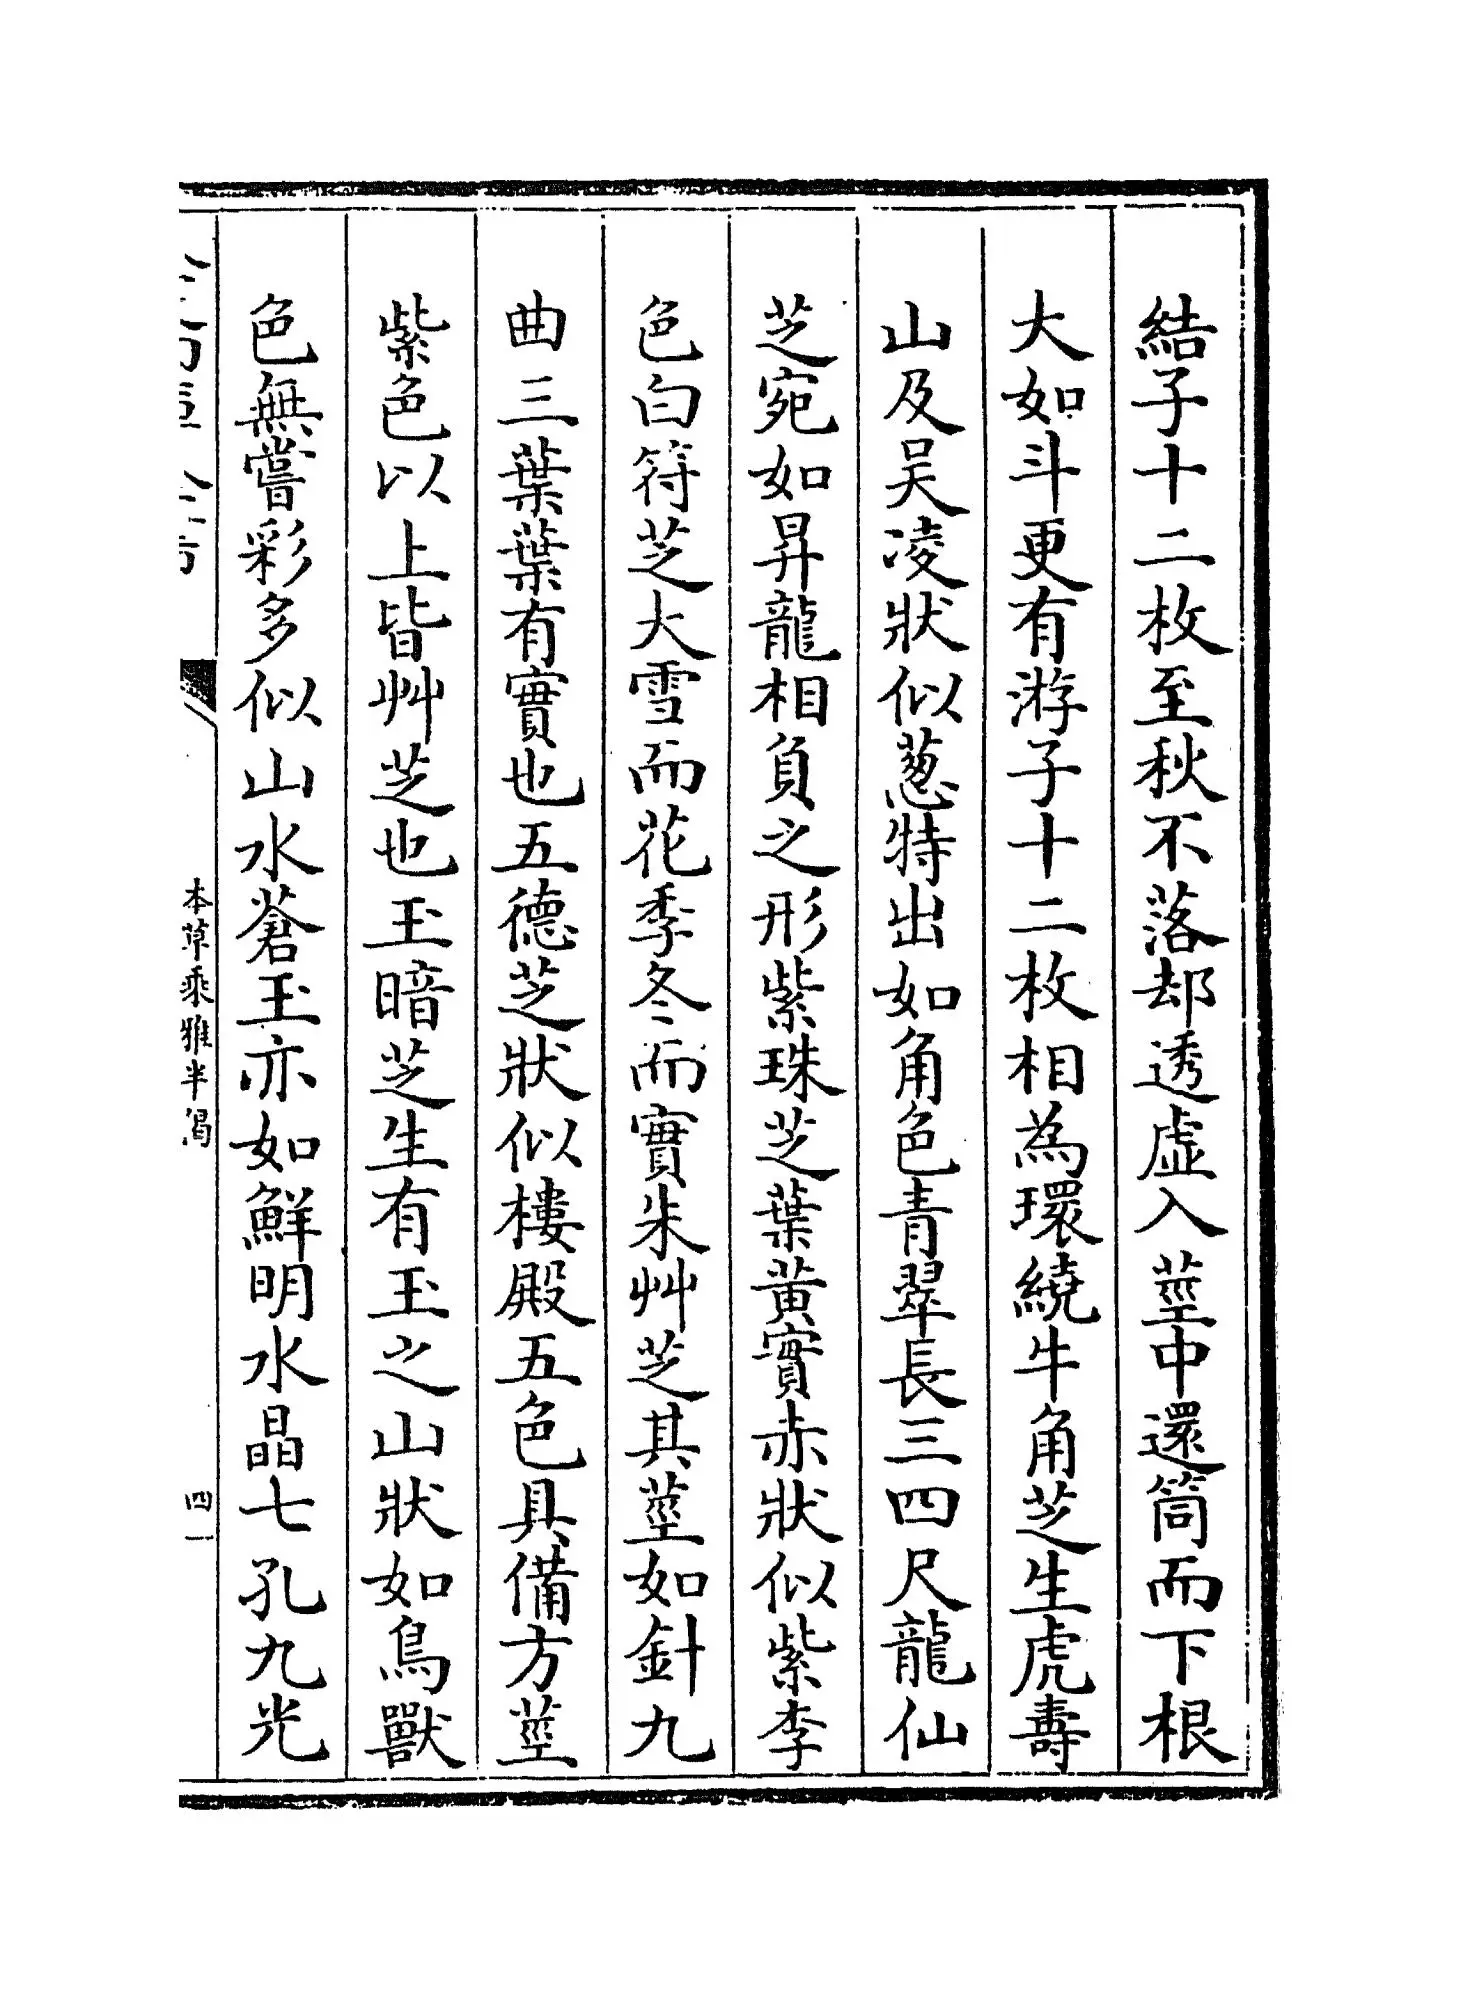 結子十二枚至秋不落却透虛入莖中還筒而下根
大如斗更有游子十二枚相為環繞牛角芝生虎壽
山及吴凌狀似葱特出如角色青翠長三四尺龍仙
芝宛如昇龍相負之形紫珠芝葉黃實赤狀似紫李
色白符芝大雪而花季冬而實朱艸芝其莖如針九
曲三葉葉有實也五德芝狀似樓殿五色具備方莖
紫色以上皆艸芝也玉暗芝生有玉之山狀如鳥獸
色無嘗彩多似山水蒼玉亦如鮮明水晶七孔九光
本草乘雅半偈
四一